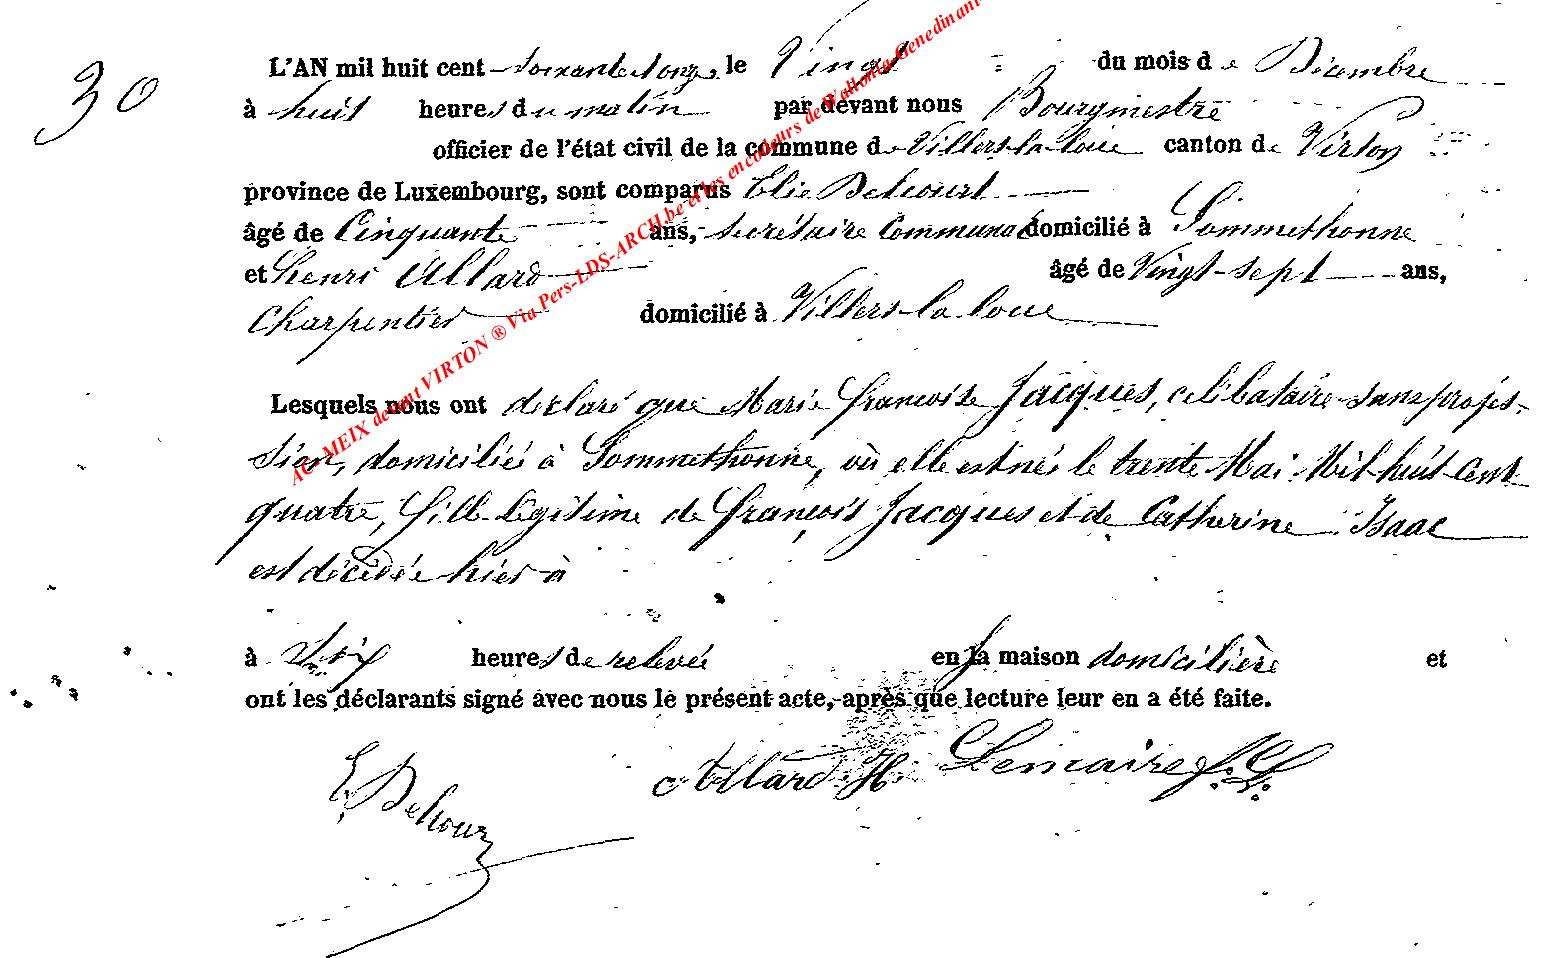 30
L'AN mil huit cent soixante et onze, le Vingt du mois de Décembre
à huit heures du matin par devant nous Bourgmestre
officier de l'état civil de la commune de Villers-la-loue canton de Virton
province de Luxembourg, sont comparus Elie Delcourt
âgé de Cinquante ans, secrétaire Communal domicilié à Sommethonne
et Henri Allard âgé de Vingt-sept ans,
Charpentier domicilié à Villers-la-loue
Lesquels nous ont déclaré que Marie françoise Jacques, celibataire sans profes-
sion, domiciliée à Sommethonne, où elle est née le trente Mai Mil huit cent
quatre, fille légitime de françois Jacques et de Catherine Isaac
est décédée hier à
à six heures de relevée en la maison domicilière et
ont les déclarants signé avec nous le présent acte, après que lecture leur en a été faite.
E. Delcour Allard H Lemaire
AC. MEIX devant VIRTON ® Via Pers-LDS-ARCH.be et les encodeurs de Wallonia-Genedinant